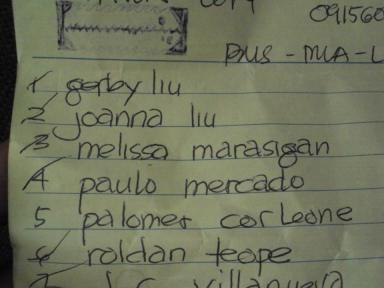 091560
DMS - MLA - L
1 gerby liu
2 joanna liu
3 melissa marasigan
4 paulo mercado
5 palomer corleone
6 roldan teope
7 villanueva